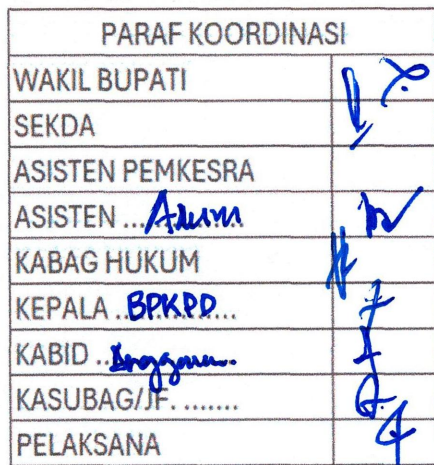 PARAF KOORDINASI
WAKIL BUPATI
SEKDA
ASISTEN PEMKESRA
ASISTEN ...Adum......
KABAG HUKUM
KEPALA ..BPKPD.......
KABID ..Anggaran.
KASUBAG/JF. .......
PELAKSANA